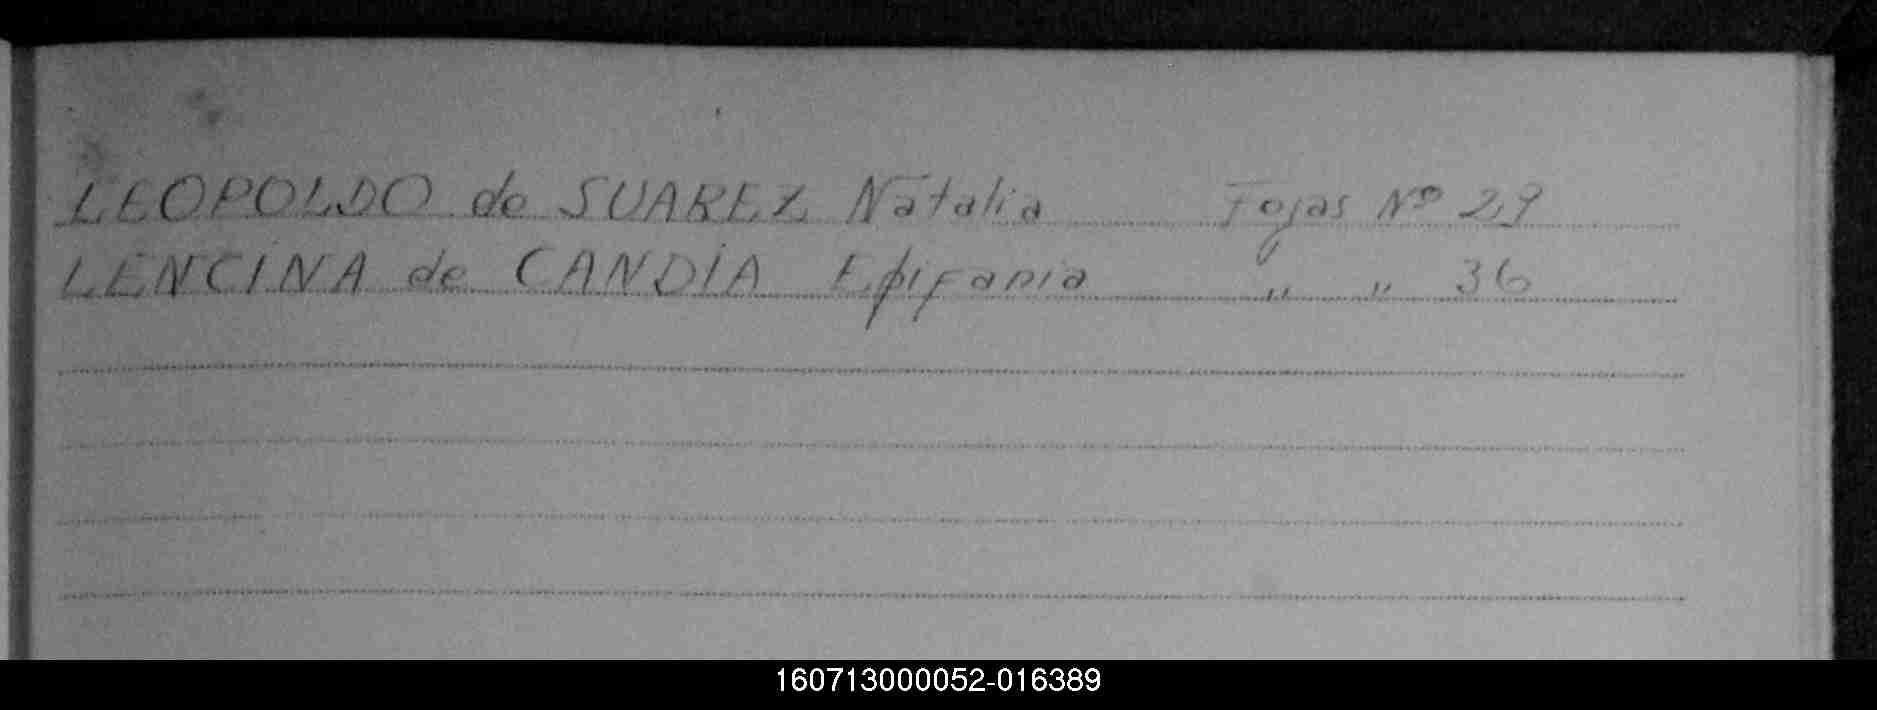 LEOPOLDO de SUAREZ Natalia Fojas Nº 29
LENCINA de CANDIA Epifania " " 36
160713000052-016389